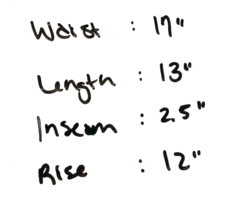 Waist : 17"
Length : 13"
Inseam : 2.5"
Rise : 12"